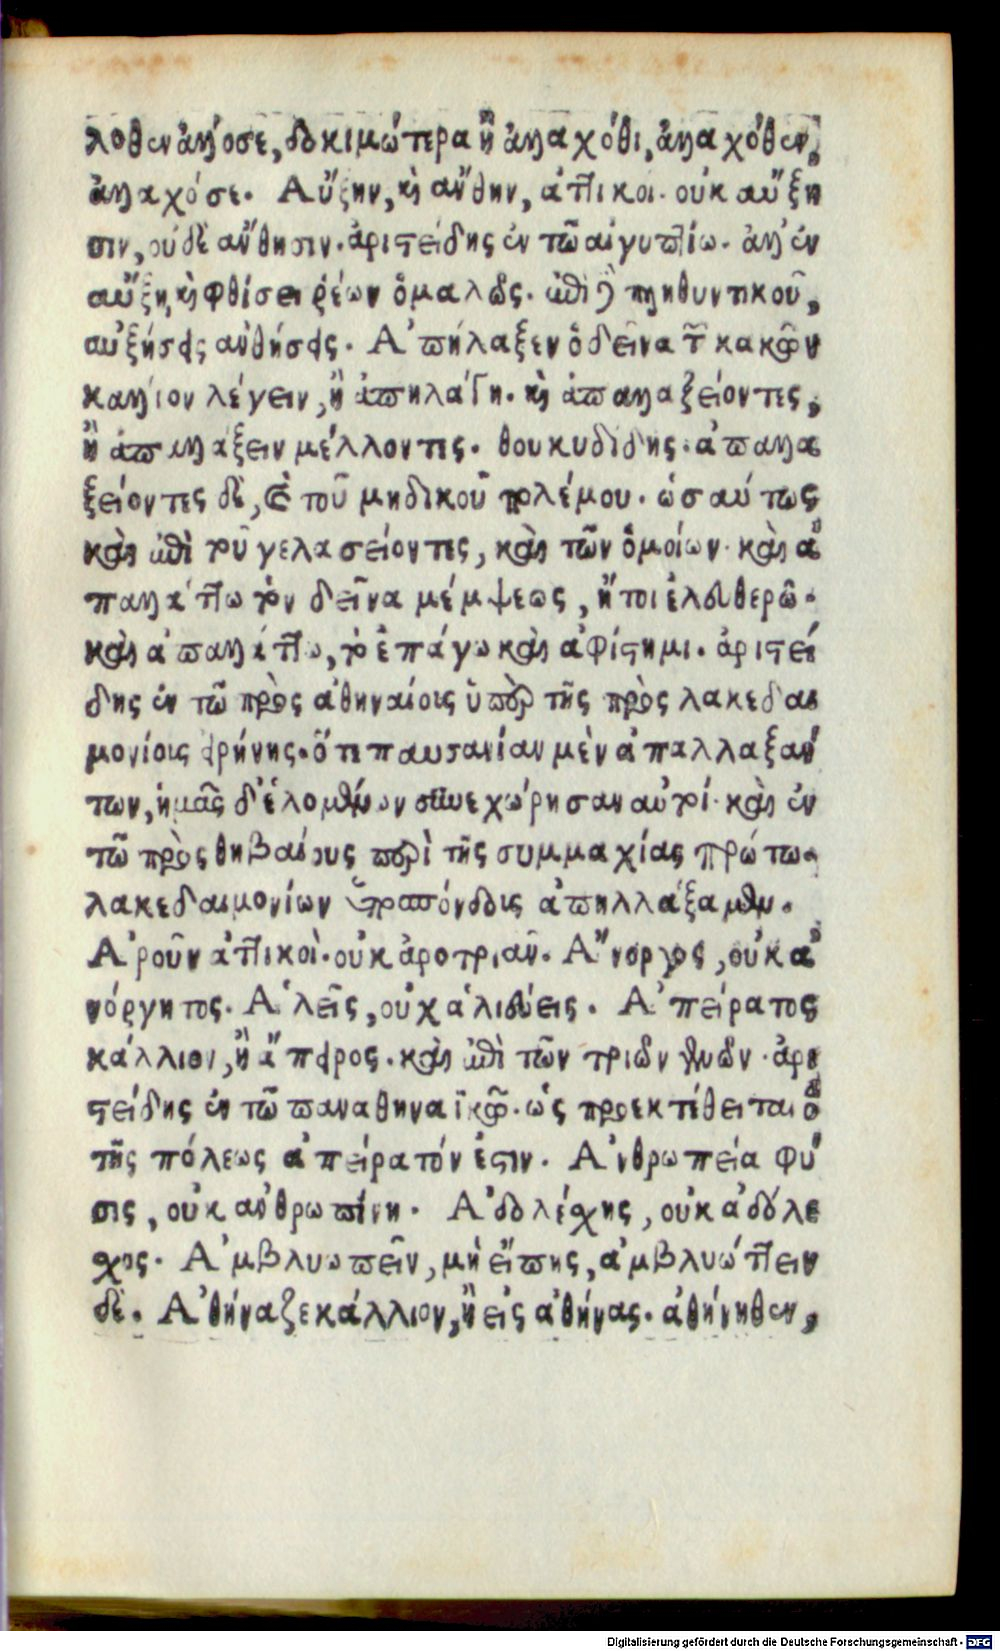 λοθεν ἄλλοσε, δοκιμώτερα ἢ ἀλλαχόθι, ἀλλαχόθεν,
ἀλλαχόσε. Αὔξην, καὶ ἄνθην, ἀττικοί. οὐκ αὔξη
σιν, οὐδὲ ἄνθησιν. ἀριστείδης ἐν τῶ αἰγυπτίω. ἀλλ' ἐν
αὔξη, καὶ φθίσει ῥέων ὁμαλῶς. ἐπὶ δὲ πληθυντικοῦ,
αὐξήσεις ἀνθήσεις. Ἀπήλαξεν ὁ δεῖνα τῶν κακῶν
κάλλιον λέγειν, ἢ ἀπηλάγη. καὶ ἀπαλλαξείοντες,
ἢ ἀπαλλάξειν μέλλοντες. θουκυδίδης. ἀπαλλα
ξείοντες δὲ, καὶ τοῦ μηδικοῦ πολέμου. ὡσαύτως
καὶ ἐπὶ τοῦ γελασείοντες, καὶ τῶν ὁμοίων. καὶ ἀ
παλλάττω τὸν δεῖνα μέμψεως, ἤτοι ἐλευθερῶ.
καὶ ἀπαλλάττω, τὸ ἐπάγω καὶ ἀφίστημι. ἀριστεί
δης ἐν τῶ πρὸς ἀθηναίοις ὑπὲρ τῆς πρὸς λακεδαι
μονίοις εἰρήνης. ὅτι παυσανίαν μὲν ἀπαλλαξάν
των, ἡμᾶς δ' ἑλομένων συνεχώρησαν αὐτοί. καὶ ἐν
τῶ πρὸς θηβαίους περὶ τῆς συμμαχίας πρώτω.
λακεδαιμονίων παρασπόνδοις ἀπηλλάξαμεν.
Ἀροῦν ἀττικοὶ. οὐκ ἀροτριαῦ. Ἄνοργος, οὐκ ἀ
νόργητος. Ἁλεῖς, οὐχ ἁλιεύεις. Ἀπείρατος
κάλλιον, ἢ ἄπειρος. καὶ ἐπὶ τῶν τριῶν γενῶν. ἀρι
στείδης ἐν τῶ παναθηναϊκῶ. ὡς προεκτίθεται ὃ
τῆς πόλεως ἀπείρατόν ἐστιν. Ἀνθρωπεία φύ
σις, οὐκ ἀνθρωπίνη. Ἀδολέσχης, οὐκ ἀδόλε
σχος. Ἀμβλυωπεῖν, μὴ εἴπης, ἀμβλυώττειν
δέ. Ἀθήναζε κάλλιον, ἢ εἰς ἀθήνας. ἀθήνηθεν,
Digitalisierung gefördert durch die Deutsche Forschungsgemeinschaft - DFG